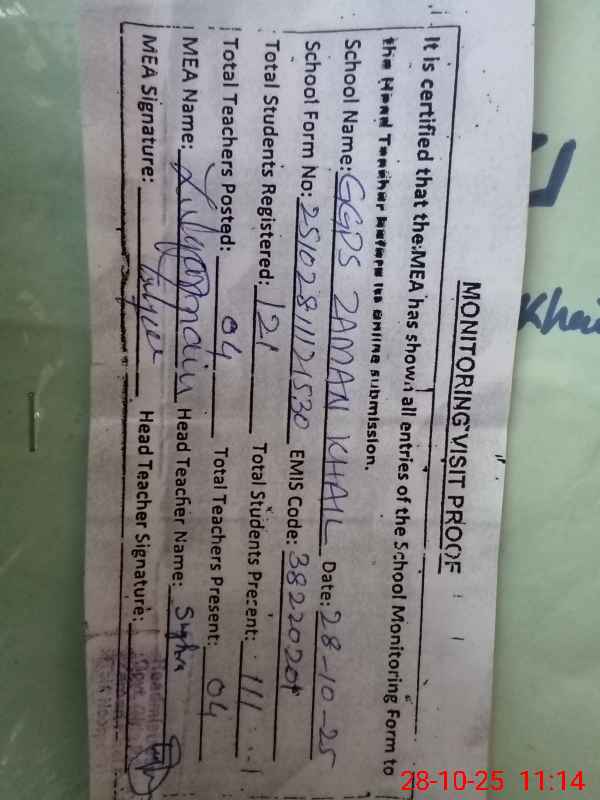 MONITORING VISIT PROOF
It is certified that the MEA has shown all entries of the School Monitoring Form to
the Head Teacher before its online submission.
School Name: GGPS ZAMAN KHAIL Date: 28-10-25
School Form No: 2510281121530 EMIS Code: 38220201
Total Students Registered: 121 Total Students Precent: 111
Total Teachers Posted: 04 Total Teachers Present: 04
MEA Name: Head Teacher Name: Sughra
MEA Signature: Head Teacher Signature:
Khai
28-10-25 11:14